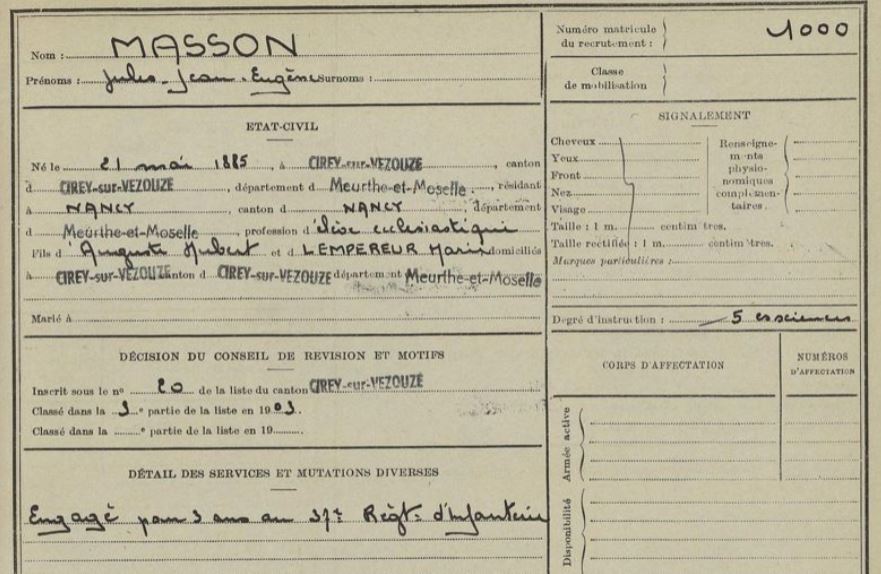 Nom : MASSON
Prénoms : Jules Jean Eugène Surnoms :
ETAT-CIVIL
Né le 21 mai 1885, à CIREY-sur-VEZOUZE, canton
d CIREY-sur-VEZOUZE, département d Meurthe-et-Moselle, résidant
à NANCY, canton d NANCY, département
d Meurthe-et-Moselle, profession d'élève ecclésiastique
Fils d'Auguste Hubert et d LEMPEREUR Marie domiciliés
à CIREY-sur-VEZOUZE canton d CIREY-sur-VEZOUZE département Meurthe-et-Moselle
Marié à
DÉCISION DU CONSEIL DE REVISION ET MOTIFS
Inscrit sous le n° 20 de la liste du canton CIREY-sur-VEZOUZE
Classé dans la 3e partie de la liste en 1903.
Classé dans la e partie de la liste en 19
DÉTAIL DES SERVICES ET MUTATIONS DIVERSES
Engagé pour 3 ans au 37e Régt. d'Infanterie
Numéro matricule du recrutement : 1000
Classe de mobilisation
SIGNALEMENT
Cheveux
Yeux
Front
Nez
Visage
Renseigne-
ments
physio-
nomiques
complémen-
taires.
Taille : 1 m. centimètres.
Taille rectifiée : 1 m. centimètres.
Marques particulières :
Degré d'instruction : 5 es sciences
CORPS D'AFFECTATION
NUMÉROS
D'AFFECTATION
Armée active
Disponibilité